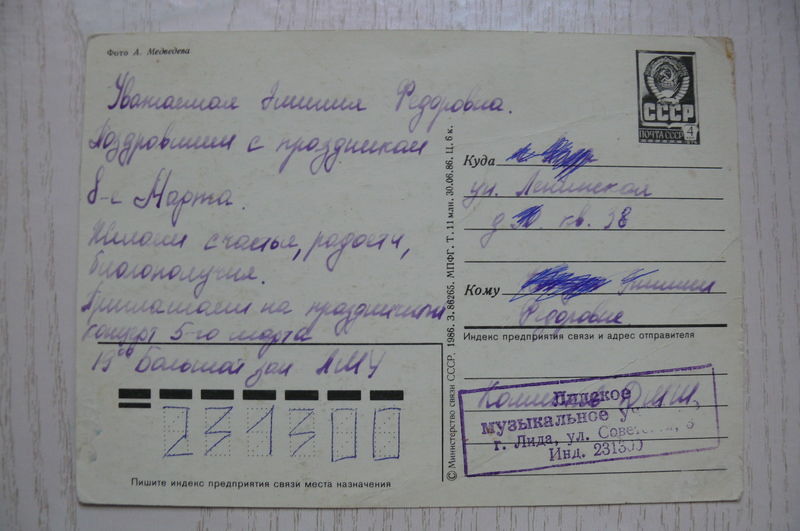 Фото А. Медведева
Уважаемая Эмилия Федоровна.
Поздравляем с праздником
8-е Марта.
Желаем счастья, радости,
благополучия.
Приглашаем на праздничный
концерт 5-го марта
19⁰⁰ Большой зал ЛМУ
231300
Пишите индекс предприятия связи места назначения
© Министерство связи СССР. 1986. З. 86265. МПФГ. Т. 11 млн. 30.06.86. Ц. 6 к.
СССР
ПОЧТА СССР 4
Куда
ул. Ленинская
д кв. 38
Кому Эмилии
Федоровне
Индекс предприятия связи и адрес отправителя
ДМШ
Лидское
музыкальное
г. Лида, ул.
Инд. 231300